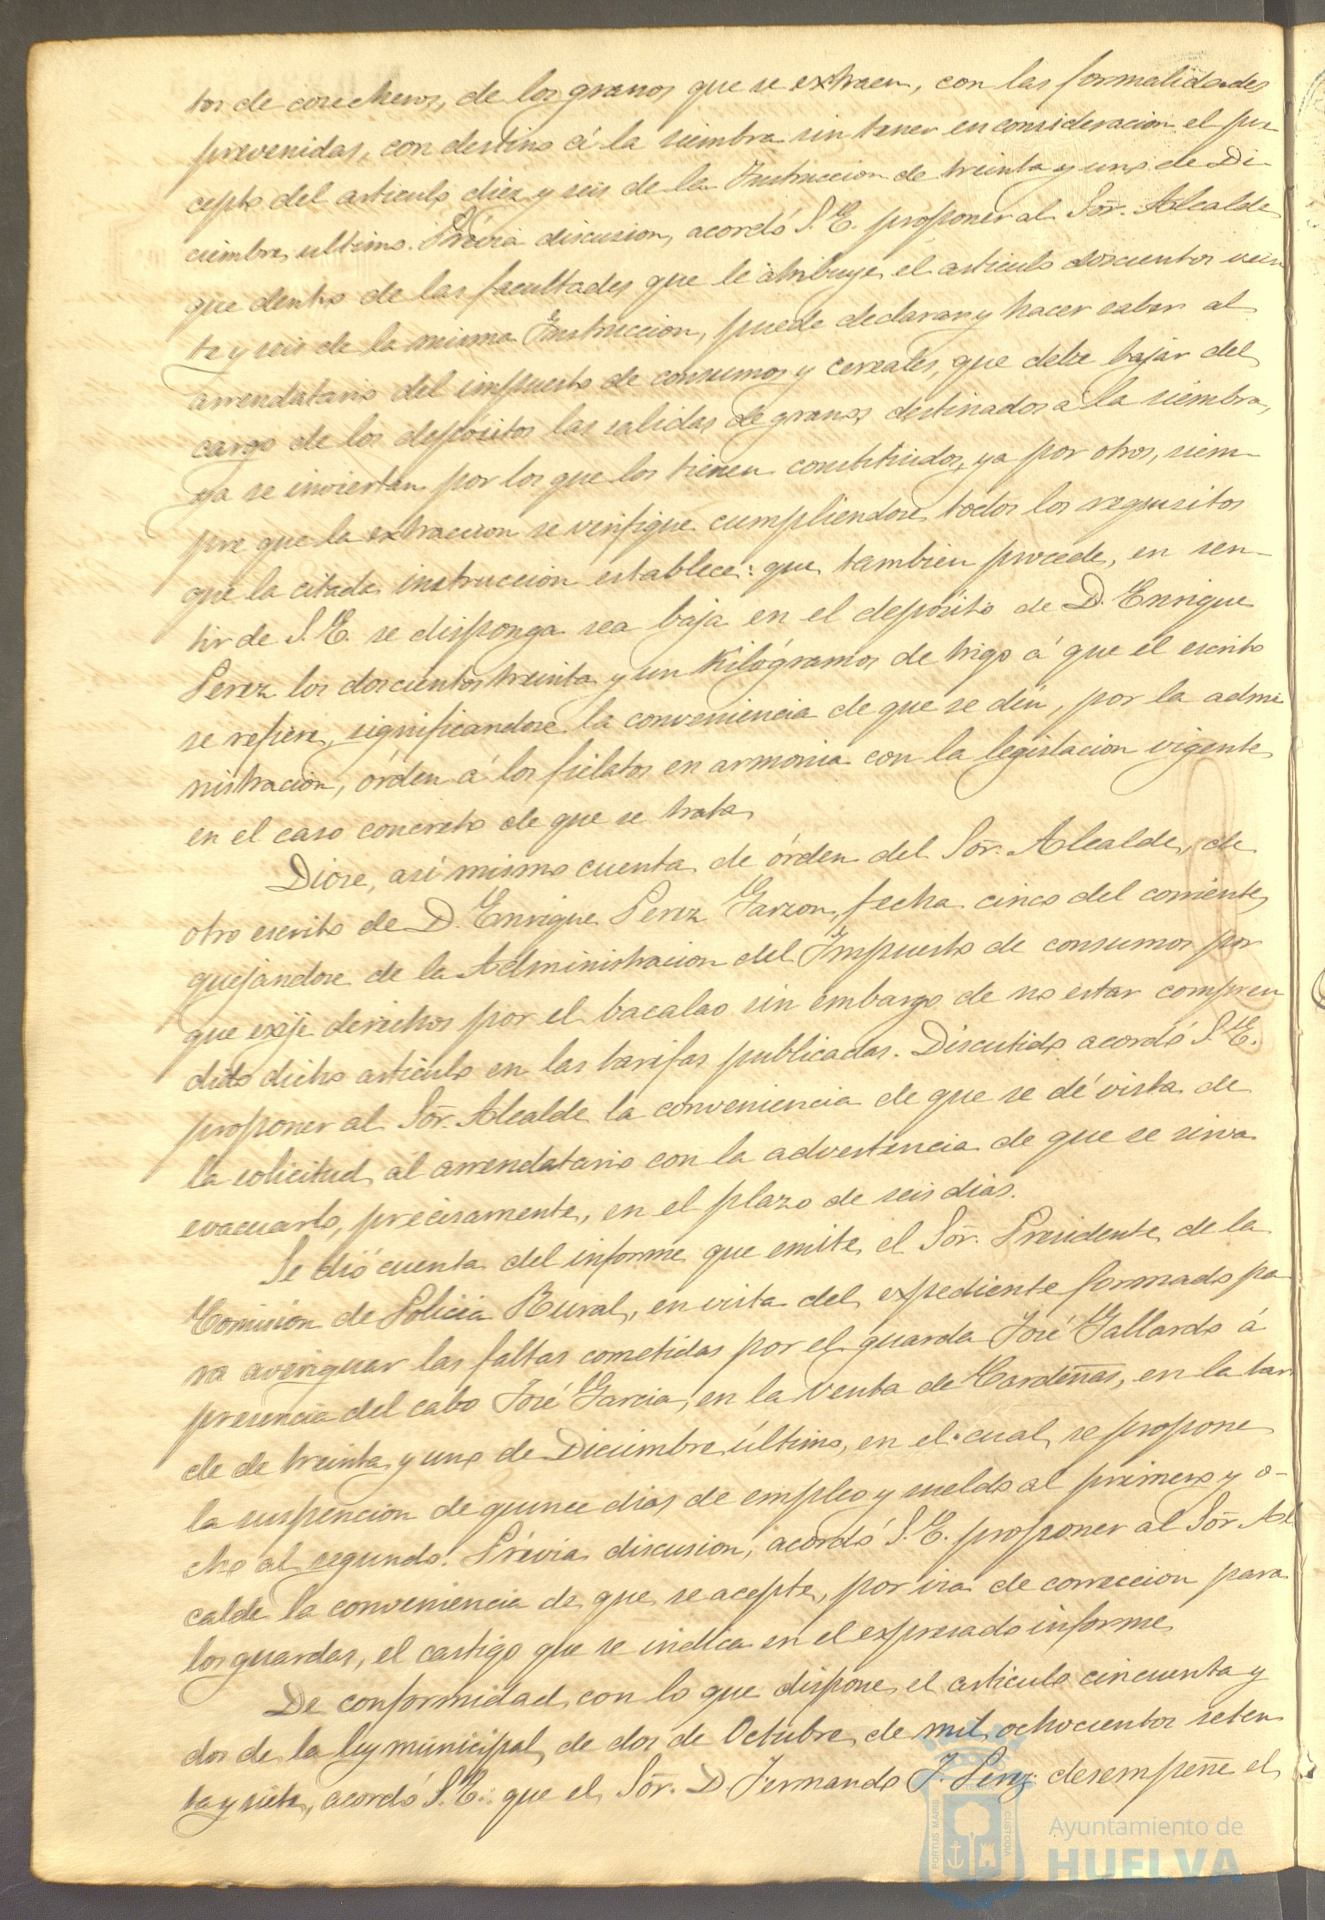 tos de cosecheros, de los granos que se extraen, con las formalidades
prevenidas, con destino á la siembra sin tener en consideracion el pre
cepto del articulo diez y seis de la Instruccion de treinta y uno de Di-
ciembre ultimo. Prévia discusion, acordó S. E. proponer al Sor. Alcalde
que dentro de las facultades que le atribuye el articulo doscientos vein
te y seis de la misma Instruccion, puede declarar y hacer saber al
arrendatario del impuesto de consumos y cereales, que debe bajar del
cargo de los depositos las salidas de granos destinados a la siembra,
ya se inviertan por los que los tienen constituidos, ya por otros, siem-
pre que la extraccion se verifique cumpliendose todos los requisitos
que la citada instruccion establece: que tambien procede, en sen-
tir de S. E. se disponga sea baja en el depósito de D. Enrique
Perez los doscientos treinta y un Kilógramos de trigo á que el escrito
se refiere, significandose la conveniencia de que se dén, por la admi
nistracion, órden á los fielatos en armonia con la legislacion vigente
en el caso concreto de que se trata.
Diose, así mismo cuenta de órden del Sor. Alcalde, de
otro escrito de D. Enrique Perez Garzon, fecha cinco del corriente,
quejándose de la Administracion del Impuesto de consumos por
que exije derechos por el bacalao sin embargo de no estar compren
dido dicho articulo en las tarifas publicadas. Discutido acordó S. E.
proponer al Sor. Alcalde la conveniencia de que se dé vista de
la solicitud al arrendatario con la advertencia de que se sirva
evacuarlo, precisamente, en el plazo de seis dias.
Se dió cuenta del informe que emite el Sor. Presidente de la
Comision de Policia Rural, en vista del expediente formado pa
ra averiguar las faltas cometidas por el guarda José Gallardo á
presencia del cabo José Garcia, en la venta de Cardeñas, en la tar
de de treinta y uno de Diciembre último, en el cual se propone
la suspencion de quince dias de empleo y sueldo al primero y o-
cho al segundo. Prévia discusion, acordó S. E. proponer al Sor. Al
calde la conveniencia de que se acepte, por via de correccion para
los guardas, el castigo que se indica en el expresado informe.
De conformidad con lo que dispone el articulo cincuenta y
dos de la ley municipal de dos de Octubre de mil ochocientos seten
ta y siete, acordó S. E.: que el Sor. D. Fernando J. Perez desempeñe el
PORTUS MARIS
CUSTODIA
Ayuntamiento de
HUELVA